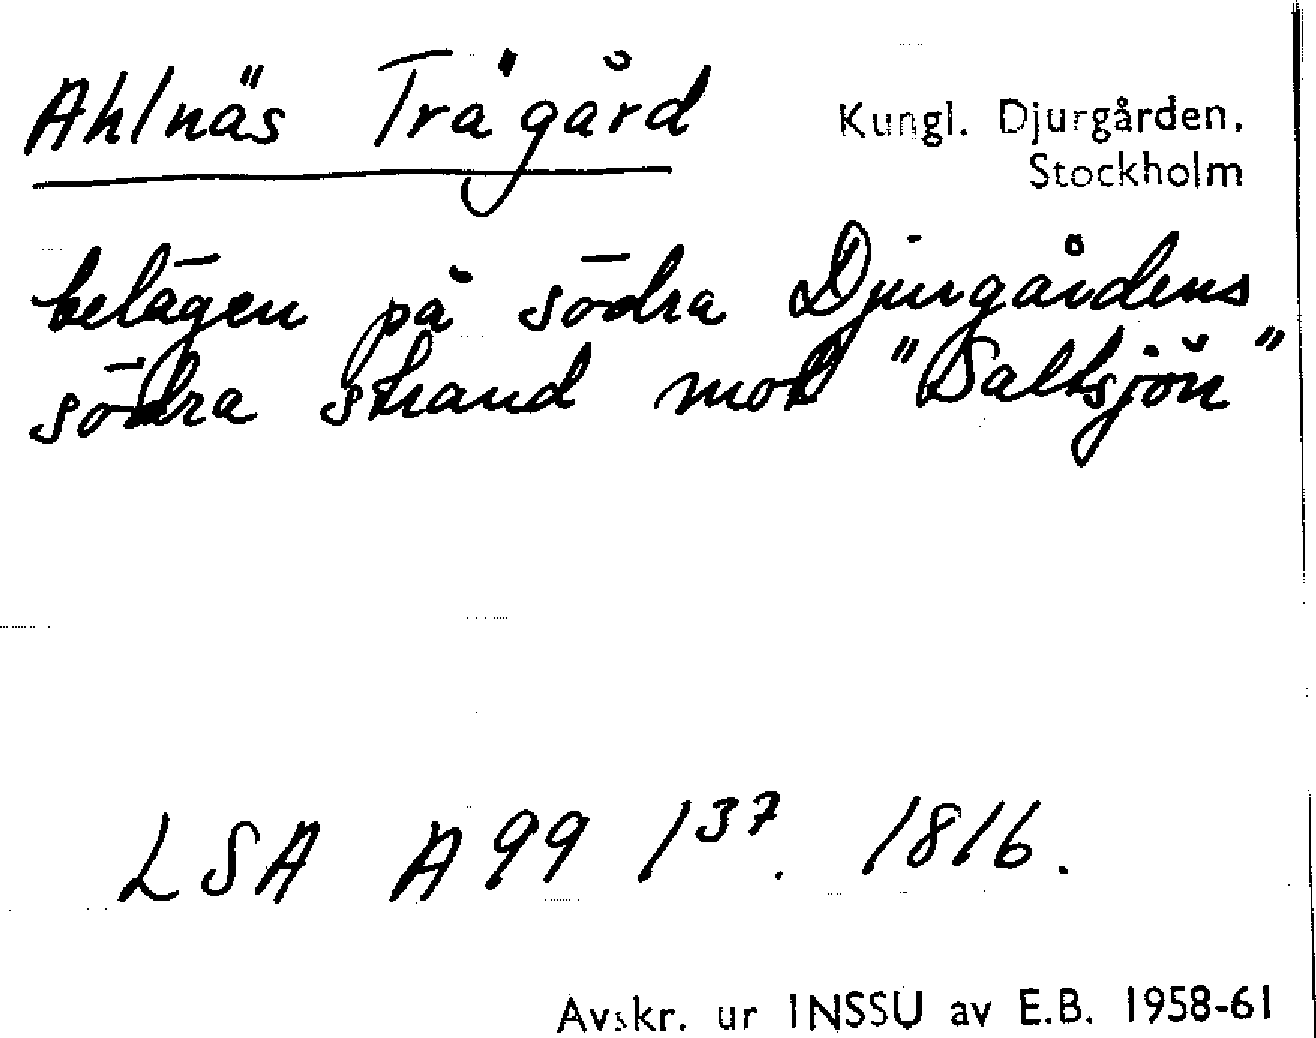 Ahlnäs Trägård
Kungl. Djurgården.
Stockholm
belägen på södra Djurgårdens
södra strand mot "Saltsjön"
LSA A99 1³⁷. 1816.
Avskr. ur INSSU av E.B. 1958-61